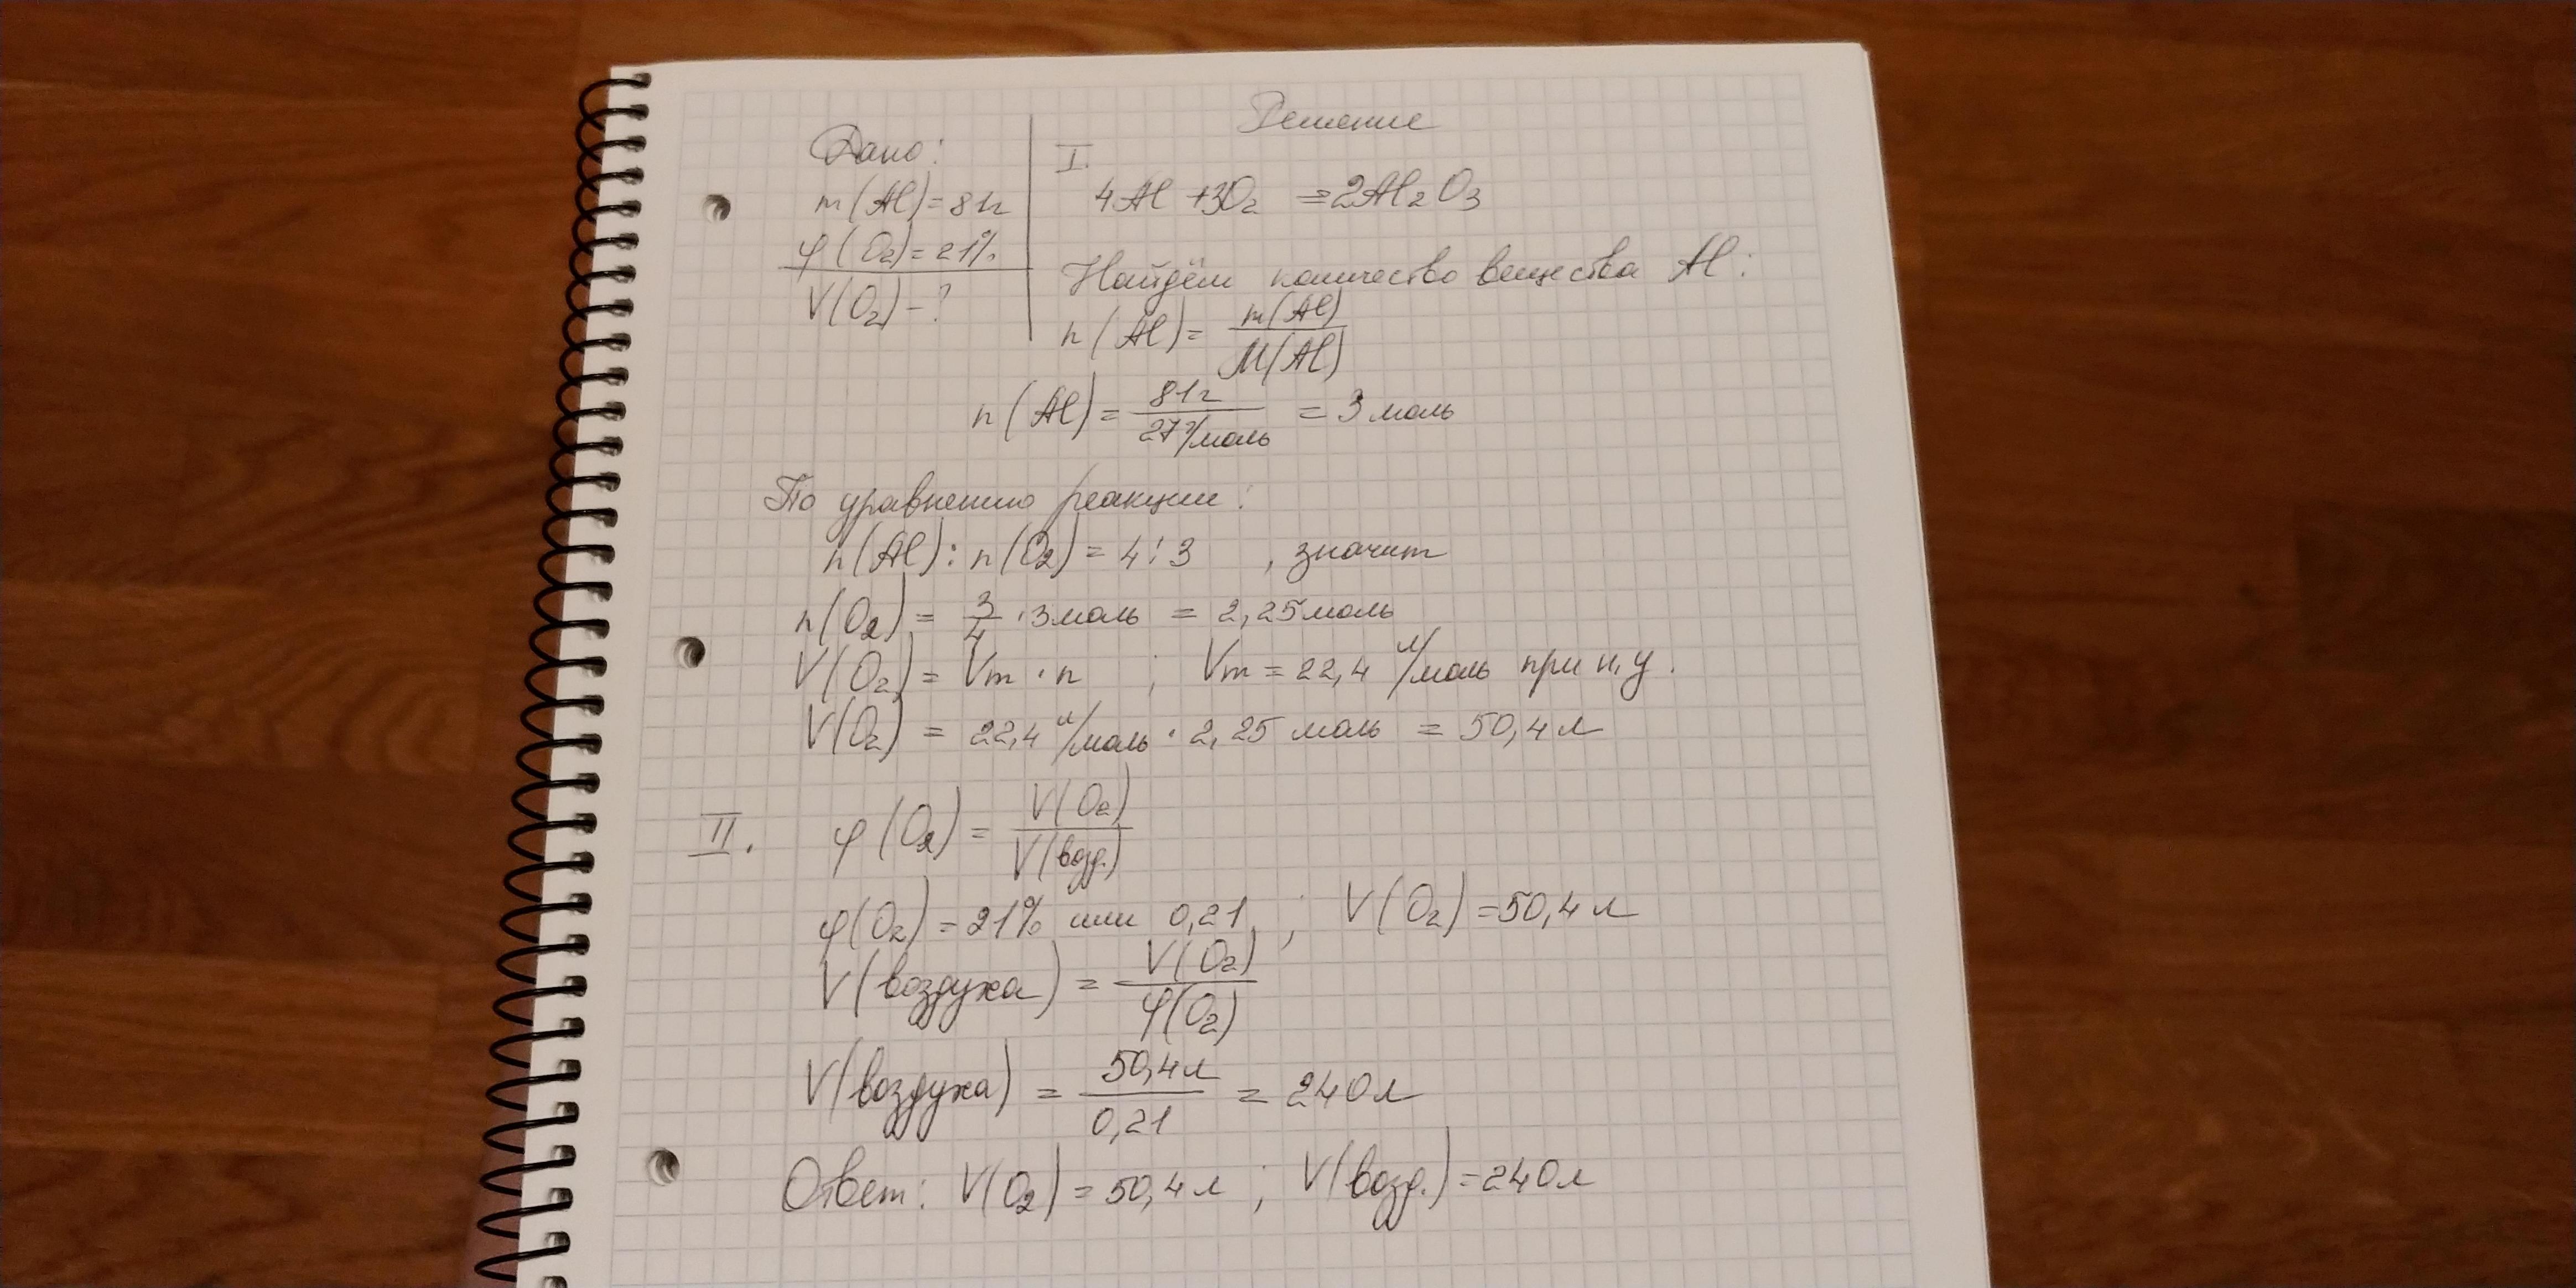 Решение
Дано:
m(Al)=81г
φ(O₂)=21%
V(O₂)-?
I.
4Al +3O₂ =2Al₂O₃
Найдём количество вещества Al:
n(Al)= m(Al)/M(Al)
n(Al)= 81г/27г/моль = 3 моль
По уравнению реакции:
n(Al):n(O₂)= 4:3 , значит
n(O₂)= 3/4 ·3моль = 2,25моль
V(O₂)= Vm·n ; Vm=22,4 л/моль при н.у.
V(O₂) = 22,4 л/моль · 2,25 моль = 50,4л
II. φ(O₂)= V(O₂)/V(возд.)
φ(O₂)=21% или 0,21 ; V(O₂)=50,4л
V(воздуха) = V(O₂)/φ(O₂)
V(воздуха) = 50,4л/0,21 = 240л
Ответ: V(O₂)=50,4л ; V(возд.)=240л